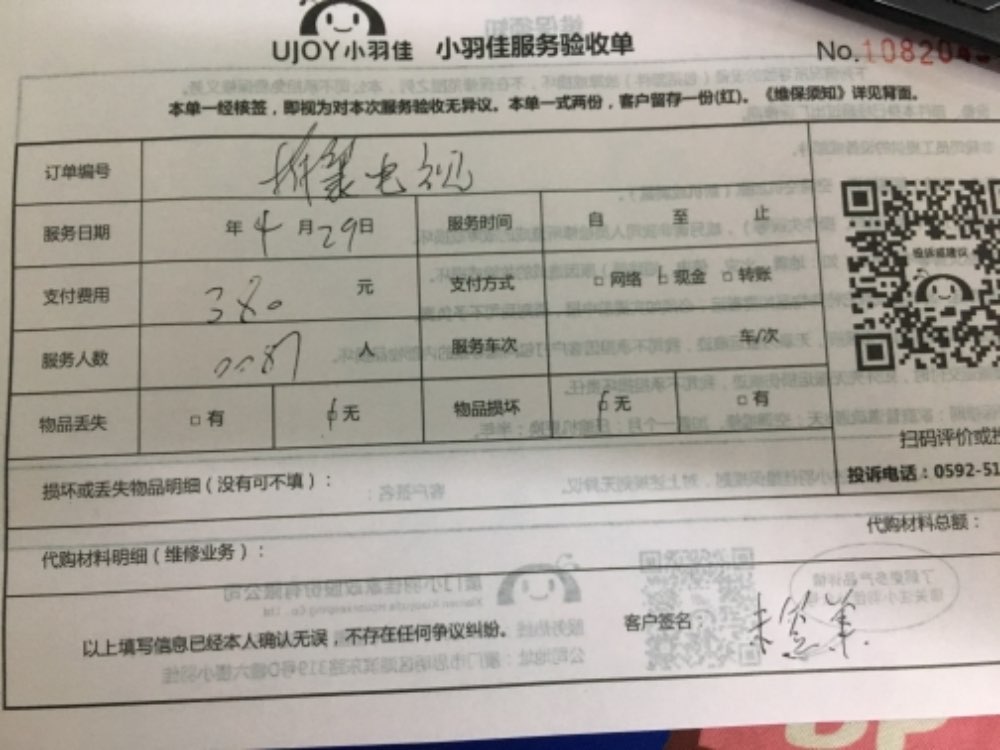 UJOY小羽佳 小羽佳服务验收单 No.10820
本单一经核签，即视为对本次服务验收无异议。本单一式两份，客户留存一份(红)。《维保须知》详见背面。
订单编号 拆装电视
服务日期 年 4 月 29 日 服务时间 自 至 止
支付费用 380 元 支付方式 □ 网络 □ 现金 □ 转账
服务人数 人 服务车次 车/次
物品丢失 □ 有 □ 无 物品损坏 □ 无 □ 有
投诉或建议
扫码评价或
投诉电话：0592-51
损坏或丢失物品明细（没有可不填）：
代购材料明细（维修业务）： 代购材料总额：
以上填写信息已经本人确认无误，不存在任何争议纠纷。 客户签名：